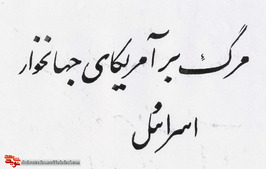 مرگ بر آمریکای جهانخوار
و
اسرائیل